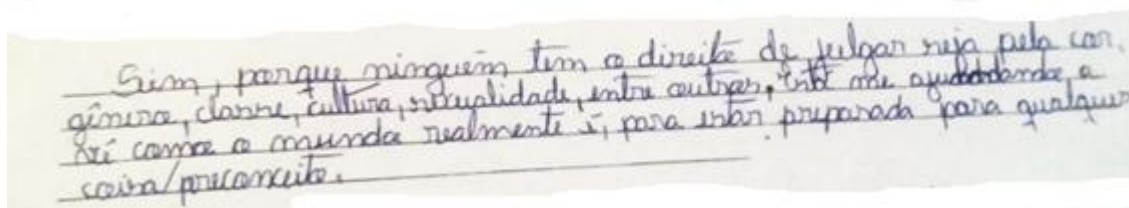 Sim, porque ninguém tem o direito de julgar seja pela cor,
gênero, classe, cultura, sexualidade, entre outras, está me ajudando, a
como o mundo realmente é, para estar preparada para qualquer
coisa/preconceito.